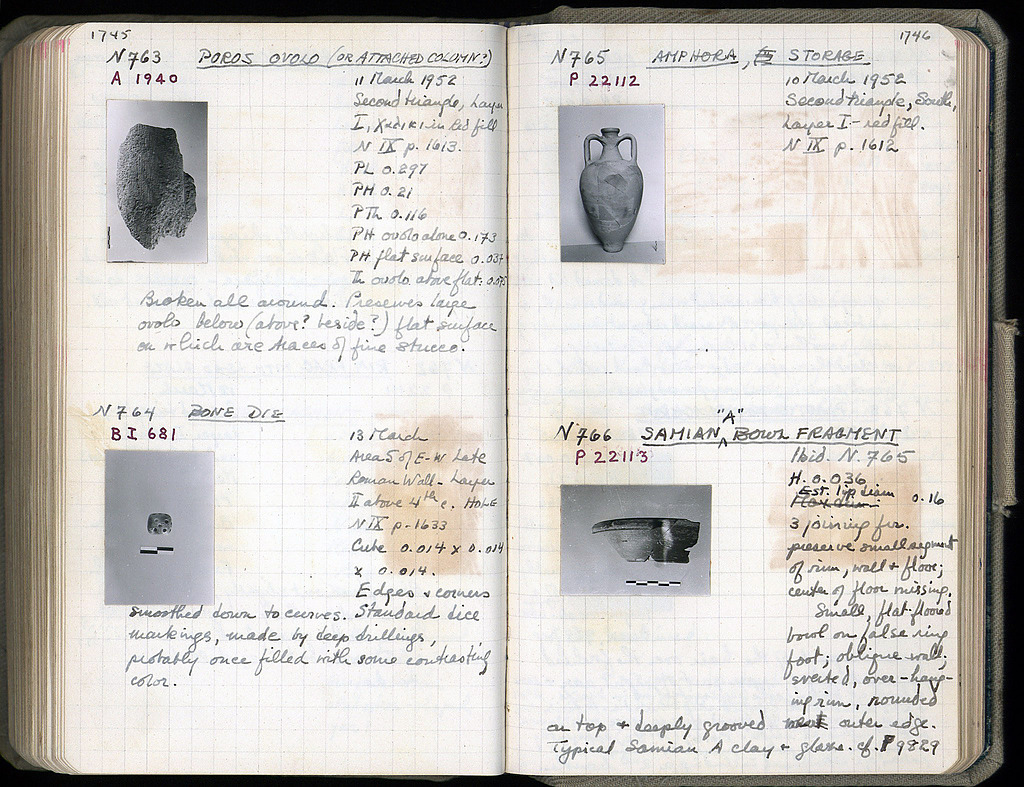 1745
N763 POROS OVOLO (OR ATTACHED COLUMN?)
A 1940
11 March 1952
Second triangle, Layer
I, in Red fill
N IX p. 1613.
PL 0.297
PH 0.21
P Th 0.116
PH ovolo alone 0.173
PH flat surface 0.037
Th ovolo above flat: 0.075
Broken all around. Preserves large
ovolo below (above? beside?) flat surface
on which are traces of fine stucco.
N764 BONE DIE
BI 681
13 March
Area 5 of E-W Late
Roman Wall - Layer
II above 4th c. HOLE
N IX p-1633
Cube 0.014 x 0.014
x 0.014.
Edges & corners
smoothed down to curves. Standard dice
markings, made by deep drillings,
probably once filled with some contrasting
color.
1746
N765 AMPHORA, STORAGE
P 22112
10 March 1952
Second triangle, South,
Layer I - red fill.
N IX p. 1612
N766 SAMIAN "A" BOWL FRAGMENT
P 22113
Ibid. N. 765
H. 0.036
Est. lip diam 0.16
3 joining fr.
preserve small segment
of rim, wall & floor;
center of floor missing.
Small, flat-floored
bowl on false ring
foot; oblique wall;
everted, over-hang-
ing rim, rounded
on top & deeply grooved outer edge.
Typical Samian A clay & glaze. cf. P 9829